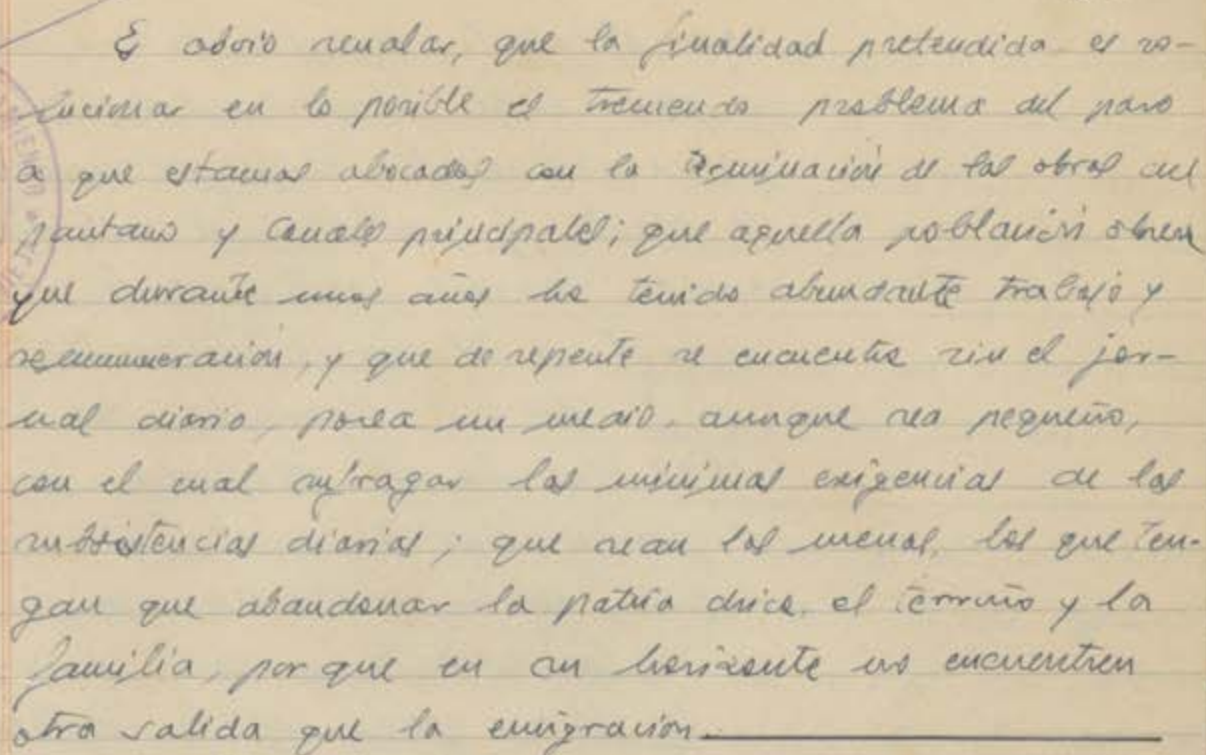 Es obvio señalar, que la finalidad pretendida es so-
lucionar en lo posible el tremendo problema del paro
a que estamos abocados con la terminación de las obras del
pantano y Canales principales; que aquella población obrera
que durante unos años ha tenido abundante trabajo y
remuneración, y que de repente se encuentra sin el jor-
nal diario, posea un medio, aunque sea pequeño,
con el cual sufragar las mínimas exigencias de las
subsistencias diarias; que sean los menos, los que ten-
gan que abandonar la patria chica, el terruño y la
familia, por que en su horizonte no encuentren
otra salida que la emigración.